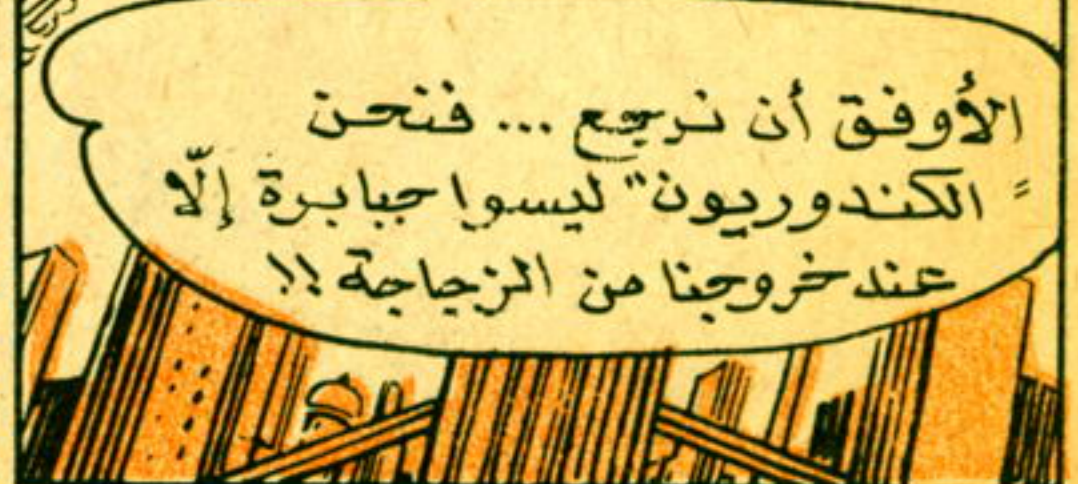 الأوفق أن نرجع ... فنحن
"الكندوريون" ليسوا جبابرة إلّا
عند خروجنا من الزجاجة !!